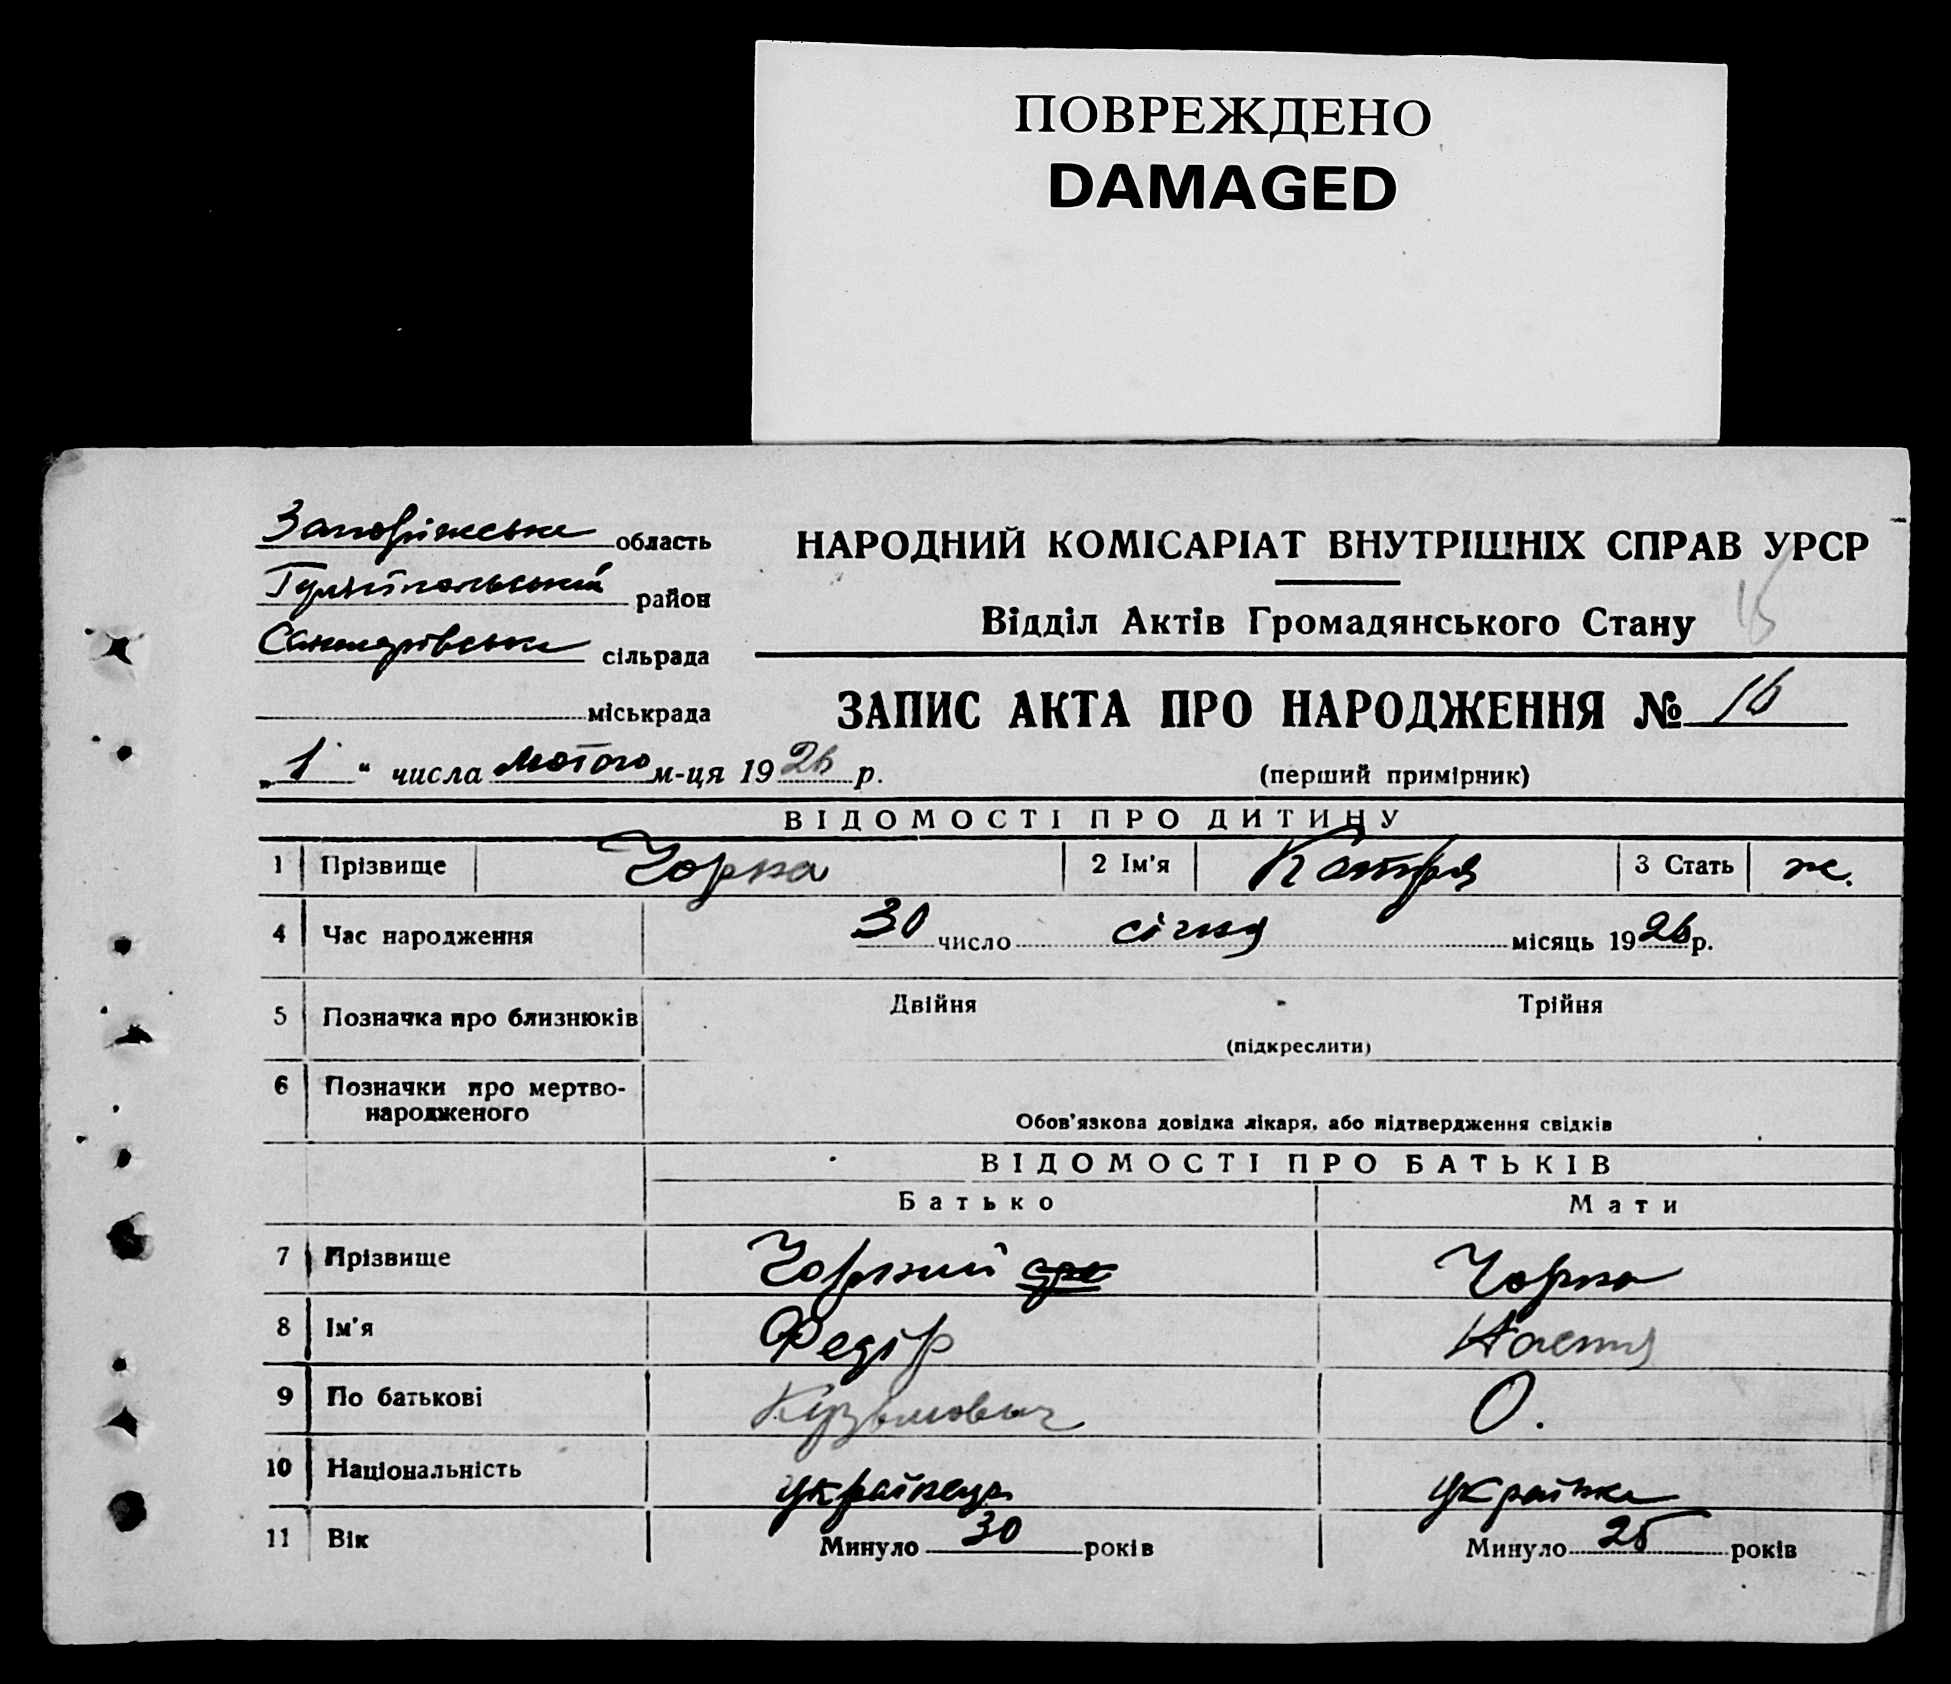 ПОВРЕЖДЕНО
DAMAGED
Запоріжська область
Гуляйпольський район
сільрада
міськрада
НАРОДНИЙ КОМІСАРІАТ ВНУТРІШНІХ СПРАВ УРСР
Відділ Актів Громадянського Стану
ЗАПИС АКТА ПРО НАРОДЖЕННЯ № 16
„1" числа лютого м-ця 1926 р.
(перший примірник)
ВІДОМОСТІ ПРО ДИТИНУ
1 Прізвище Чорна 2 Ім'я Катря 3 Стать ж.
4 Час народження 30 число січня місяць 1926 р.
5 Позначка про близнюків Двійня Трійня
(підкреслити)
6 Позначки про мертво-
народженого
Обов'язкова довідка лікаря, або підтвердження свідків
ВІДОМОСТІ ПРО БАТЬКІВ
Батько Мати
7 Прізвище Чорний Чорна
8 Ім'я Федір Настя
9 По батькові Кузьмович О.
10 Національність українець українка
11 Вік Минуло 30 років Минуло 25 років